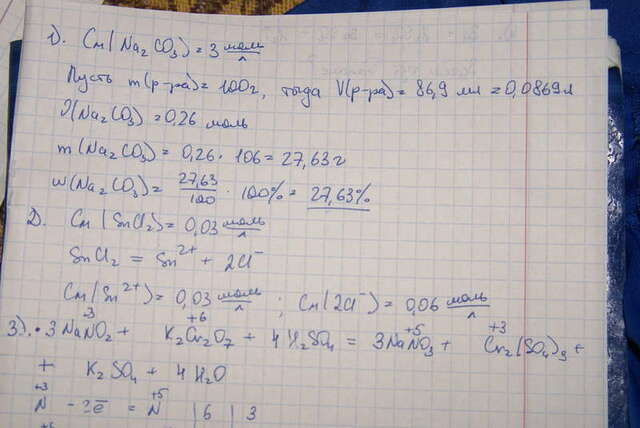 1). Cм(Na₂CO₃) = 3 моль/л
Пусть m(р-ра) = 100г, тогда V(р-ра) = 86,9 мл = 0,0869 л
ν(Na₂CO₃) = 0,26 моль
m(Na₂CO₃) = 0,26 · 106 = 27,63 г
w(Na₂CO₃) = 27,63/100 · 100% = 27,63%
2). Cм(SnCl₂) = 0,03 моль/л
SnCl₂ = Sn²⁺ + 2Cl⁻
Cм(Sn²⁺) = 0,03 моль/л ; Cм(2Cl⁻) = 0,06 моль/л
+3 +6 +5 +3
3). · 3NaNO₂ + K₂Cr₂O₇ + 4H₂SO₄ = 3NaNO₃ + Cr₂(SO₄)₃ +
+ K₂SO₄ + 4H₂O
+3 +5
N - 2e̅ = N | 6 | 3
+6